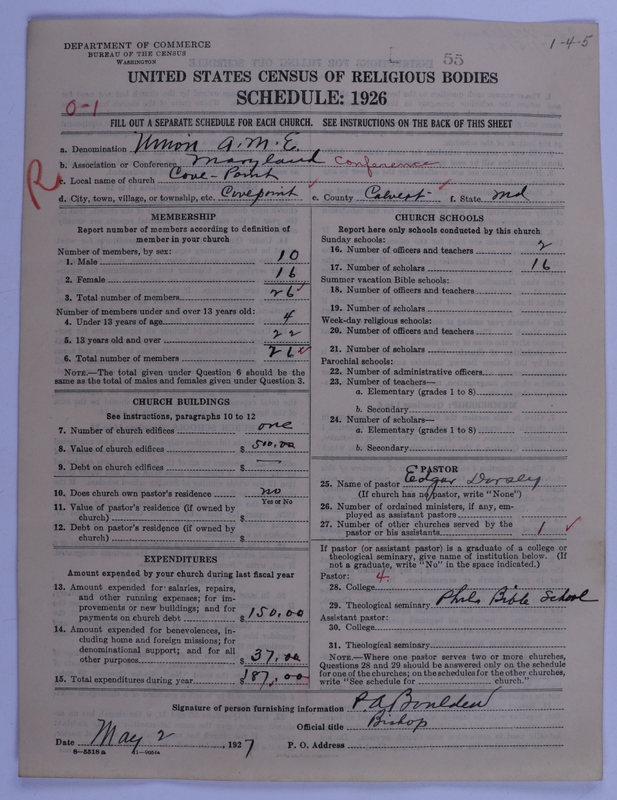 DEPARTMENT OF COMMERCE
BUREAU OF THE CENSUS
WASHINGTON
55
1-4-5
UNITED STATES CENSUS OF RELIGIOUS BODIES
SCHEDULE: 1926
0-1
FILL OUT A SEPARATE SCHEDULE FOR EACH CHURCH. SEE INSTRUCTIONS ON THE BACK OF THIS SHEET
R
a. Denomination Union A.M.E.
b. Association or Conference Maryland Conference
c. Local name of church Cove-Point
d. City, town, village, or township, etc. Covepoint e. County Calvert f. State Md
MEMBERSHIP
Report number of members according to definition of
member in your church
Number of members, by sex:
1. Male 10
2. Female 16
3. Total number of members 26
Number of members under and over 13 years old:
4. Under 13 years of age 4
5. 13 years old and over 22
6. Total number of members 26
NOTE.—The total given under Question 6 should be the
same as the total of males and females given under Question 3.
CHURCH BUILDINGS
See instructions, paragraphs 10 to 12
7. Number of church edifices one
8. Value of church edifices $ 500.00
9. Debt on church edifices $ —
10. Does church own pastor's residence no
Yes or No
11. Value of pastor's residence (if owned by
church) $
12. Debt on pastor's residence (if owned by
church) $
EXPENDITURES
Amount expended by your church during last fiscal year
13. Amount expended for salaries, repairs,
and other running expenses; for im-
provements or new buildings; and for
payments on church debt $ 150.00
14. Amount expended for benevolences, in-
cluding home and foreign missions; for
denominational support; and for all
other purposes $ 37.00
15. Total expenditures during year $ 187.00
CHURCH SCHOOLS
Report here only schools conducted by this church
Sunday schools:
16. Number of officers and teachers 2
17. Number of scholars 16
Summer vacation Bible schools:
18. Number of officers and teachers
19. Number of scholars
Week-day religious schools:
20. Number of officers and teachers
21. Number of scholars
Parochial schools:
22. Number of administrative officers
23. Number of teachers—
a. Elementary (grades 1 to 8)
b. Secondary
24. Number of scholars—
a. Elementary (grades 1 to 8)
b. Secondary
PASTOR
25. Name of pastor Edgar Dorsey
(If church has no pastor, write "None")
26. Number of ordained ministers, if any, em-
ployed as assistant pastors
27. Number of other churches served by the
pastor or his assistants 1
If pastor (or assistant pastor) is a graduate of a college or
theological seminary, give name of institution below. (If
not a graduate, write "No" in the space indicated.)
Pastor: 4
28. College
29. Theological seminary Phila Bible School
Assistant pastor:
30. College
31. Theological seminary
NOTE.—Where one pastor serves two or more churches,
Questions 28 and 29 should be answered only on the schedule
for one of the churches; on the schedules for the other churches,
write "See schedule for church."
Signature of person furnishing information P.A. Boulden
Official title Bishop
Date May 2, 1927 P. O. Address
8—5518 a